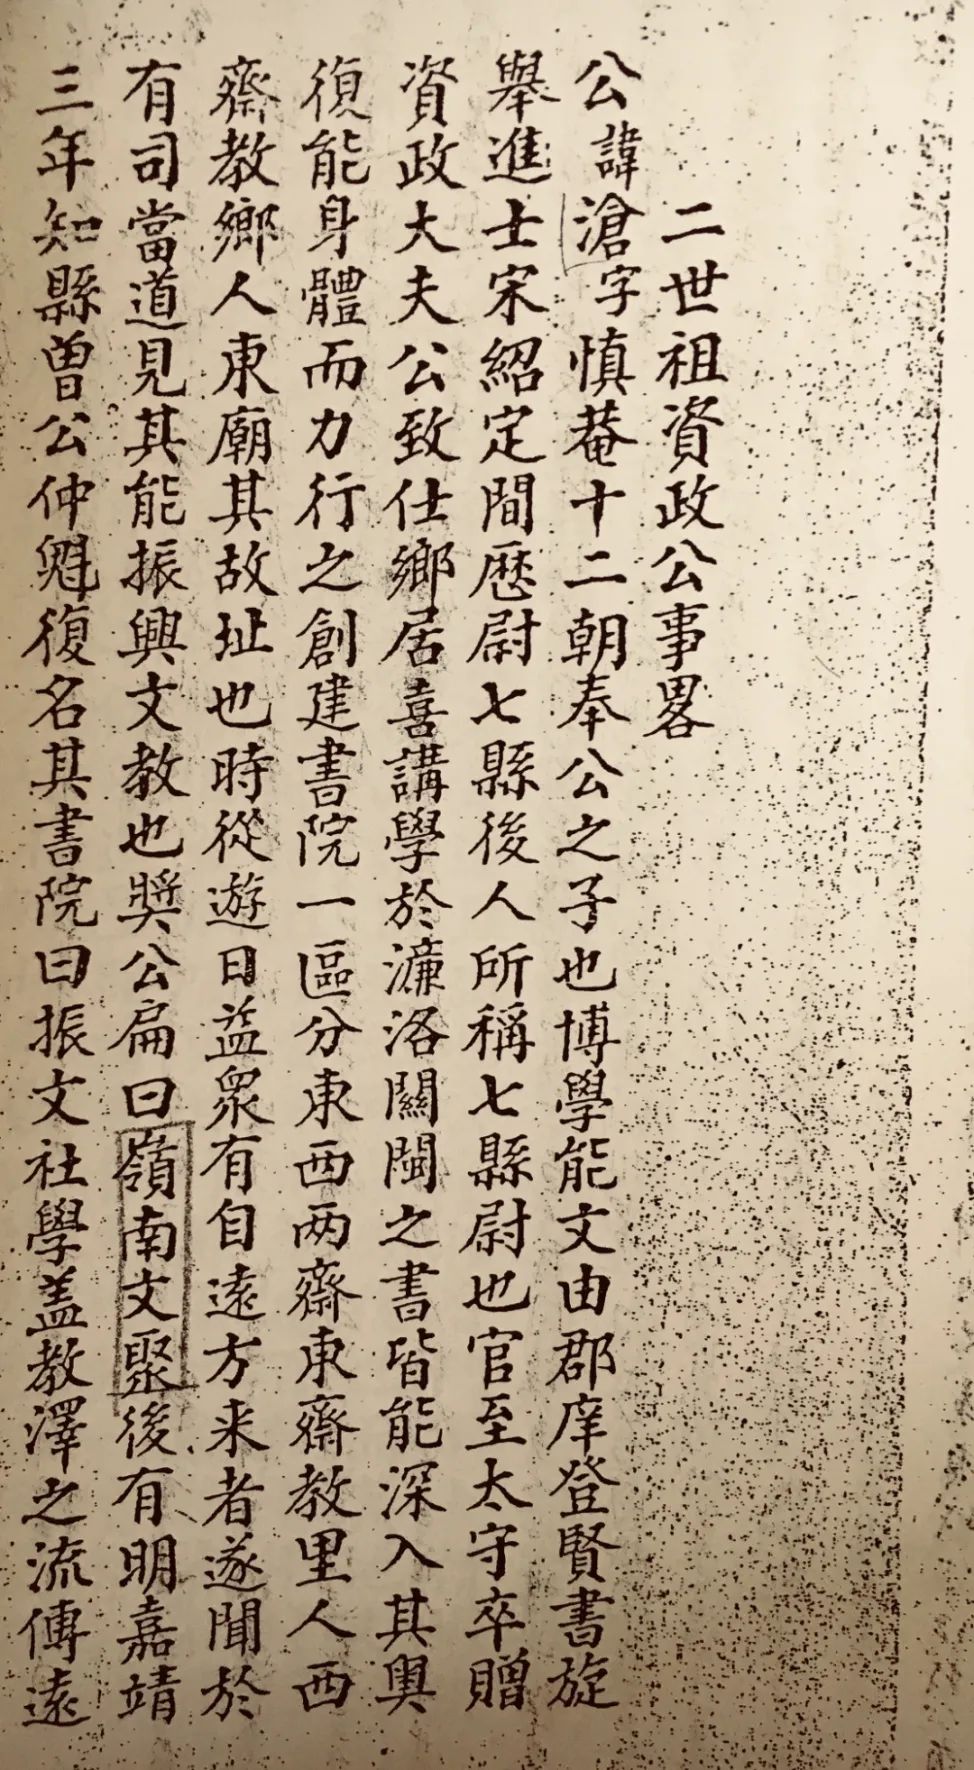 二世祖資政公事畧
公諱滄字慎菴十二朝奉公之子也博學能文由郡庠登賢書旋
舉進士宋紹定間歴尉七縣後人所稱七縣尉也官至太守卒贈
資政大夫公致仕鄉居喜講學於濂洛關閩之書皆能深入其輿
復能身體而力行之創建書院一區分東西两齋東齋教里人西
齋教鄉人東廟其故址也時從遊日益衆有自遠方来者遂聞於
有司當道見其能振興文教也奬公扁曰嶺南文聚後有明嘉靖
三年知縣曾公仲魁復名其書院曰振文社學盖教澤之流傳遠